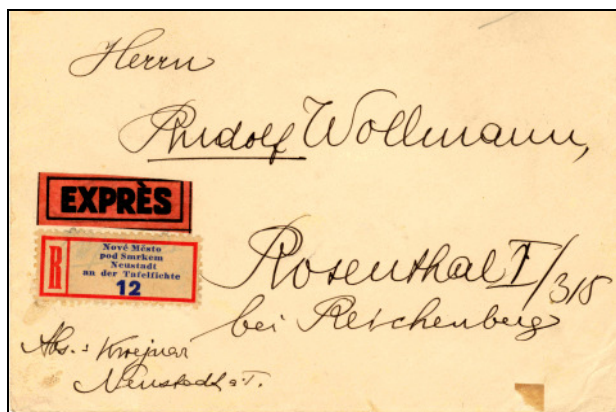 Herrn
Rudolf Wollmann,
EXPRÈS
R
Nové Město
pod Smrkem
Neustadt
an der Tafelfichte
12
Rosenthal I/318
bei Reichenberg
Abs.:
Neustadt a. T.